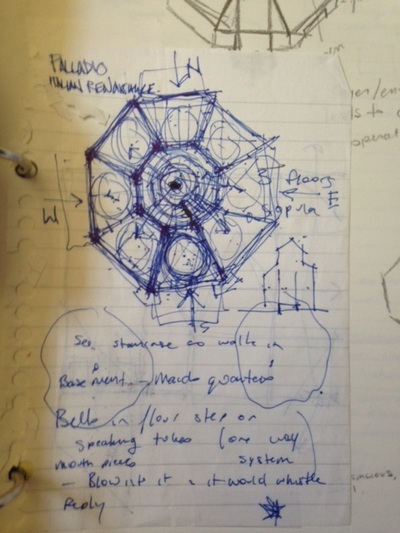 PALLADIO
ITALIAN RENAISSANCE
N
3 floors
E
Cupola
W
S
See staircase as walk in
Basement - Maids quarters
Bells in floor step on
speaking tubes (one way
mouth pieces system
- Blow into it & it would whistle
Reply